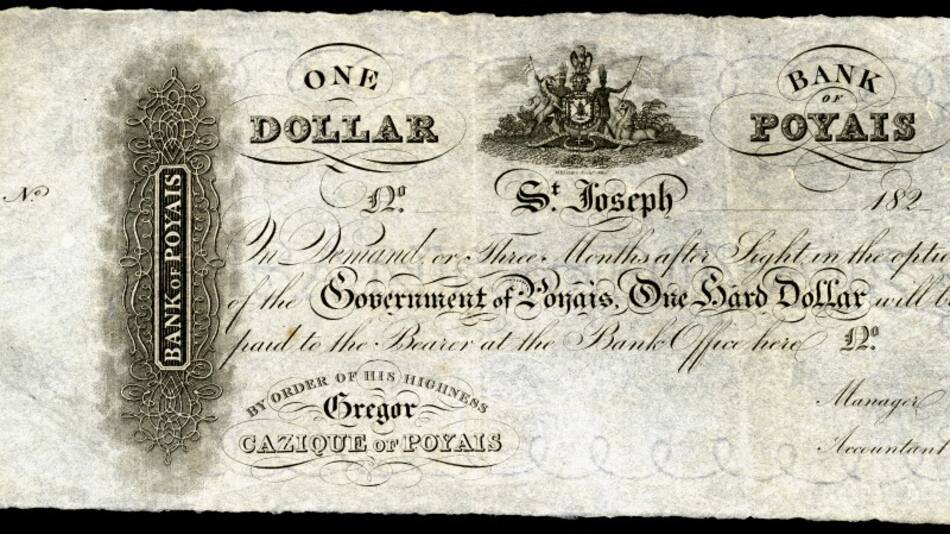 ONE
DOLLAR
BANK
OF
POYAIS
BANK OF POYAIS
Nº
Nº
St. Joseph
182
On Demand, or Three Months after Sight in the optio
of the Government of Poyais, One Hard Dollar will b
paid to the Bearer at the Bank Office here Nº
BY ORDER OF HIS HIGHNESS
Gregor
CAZIQUE OF POYAIS
Manager
Accountant